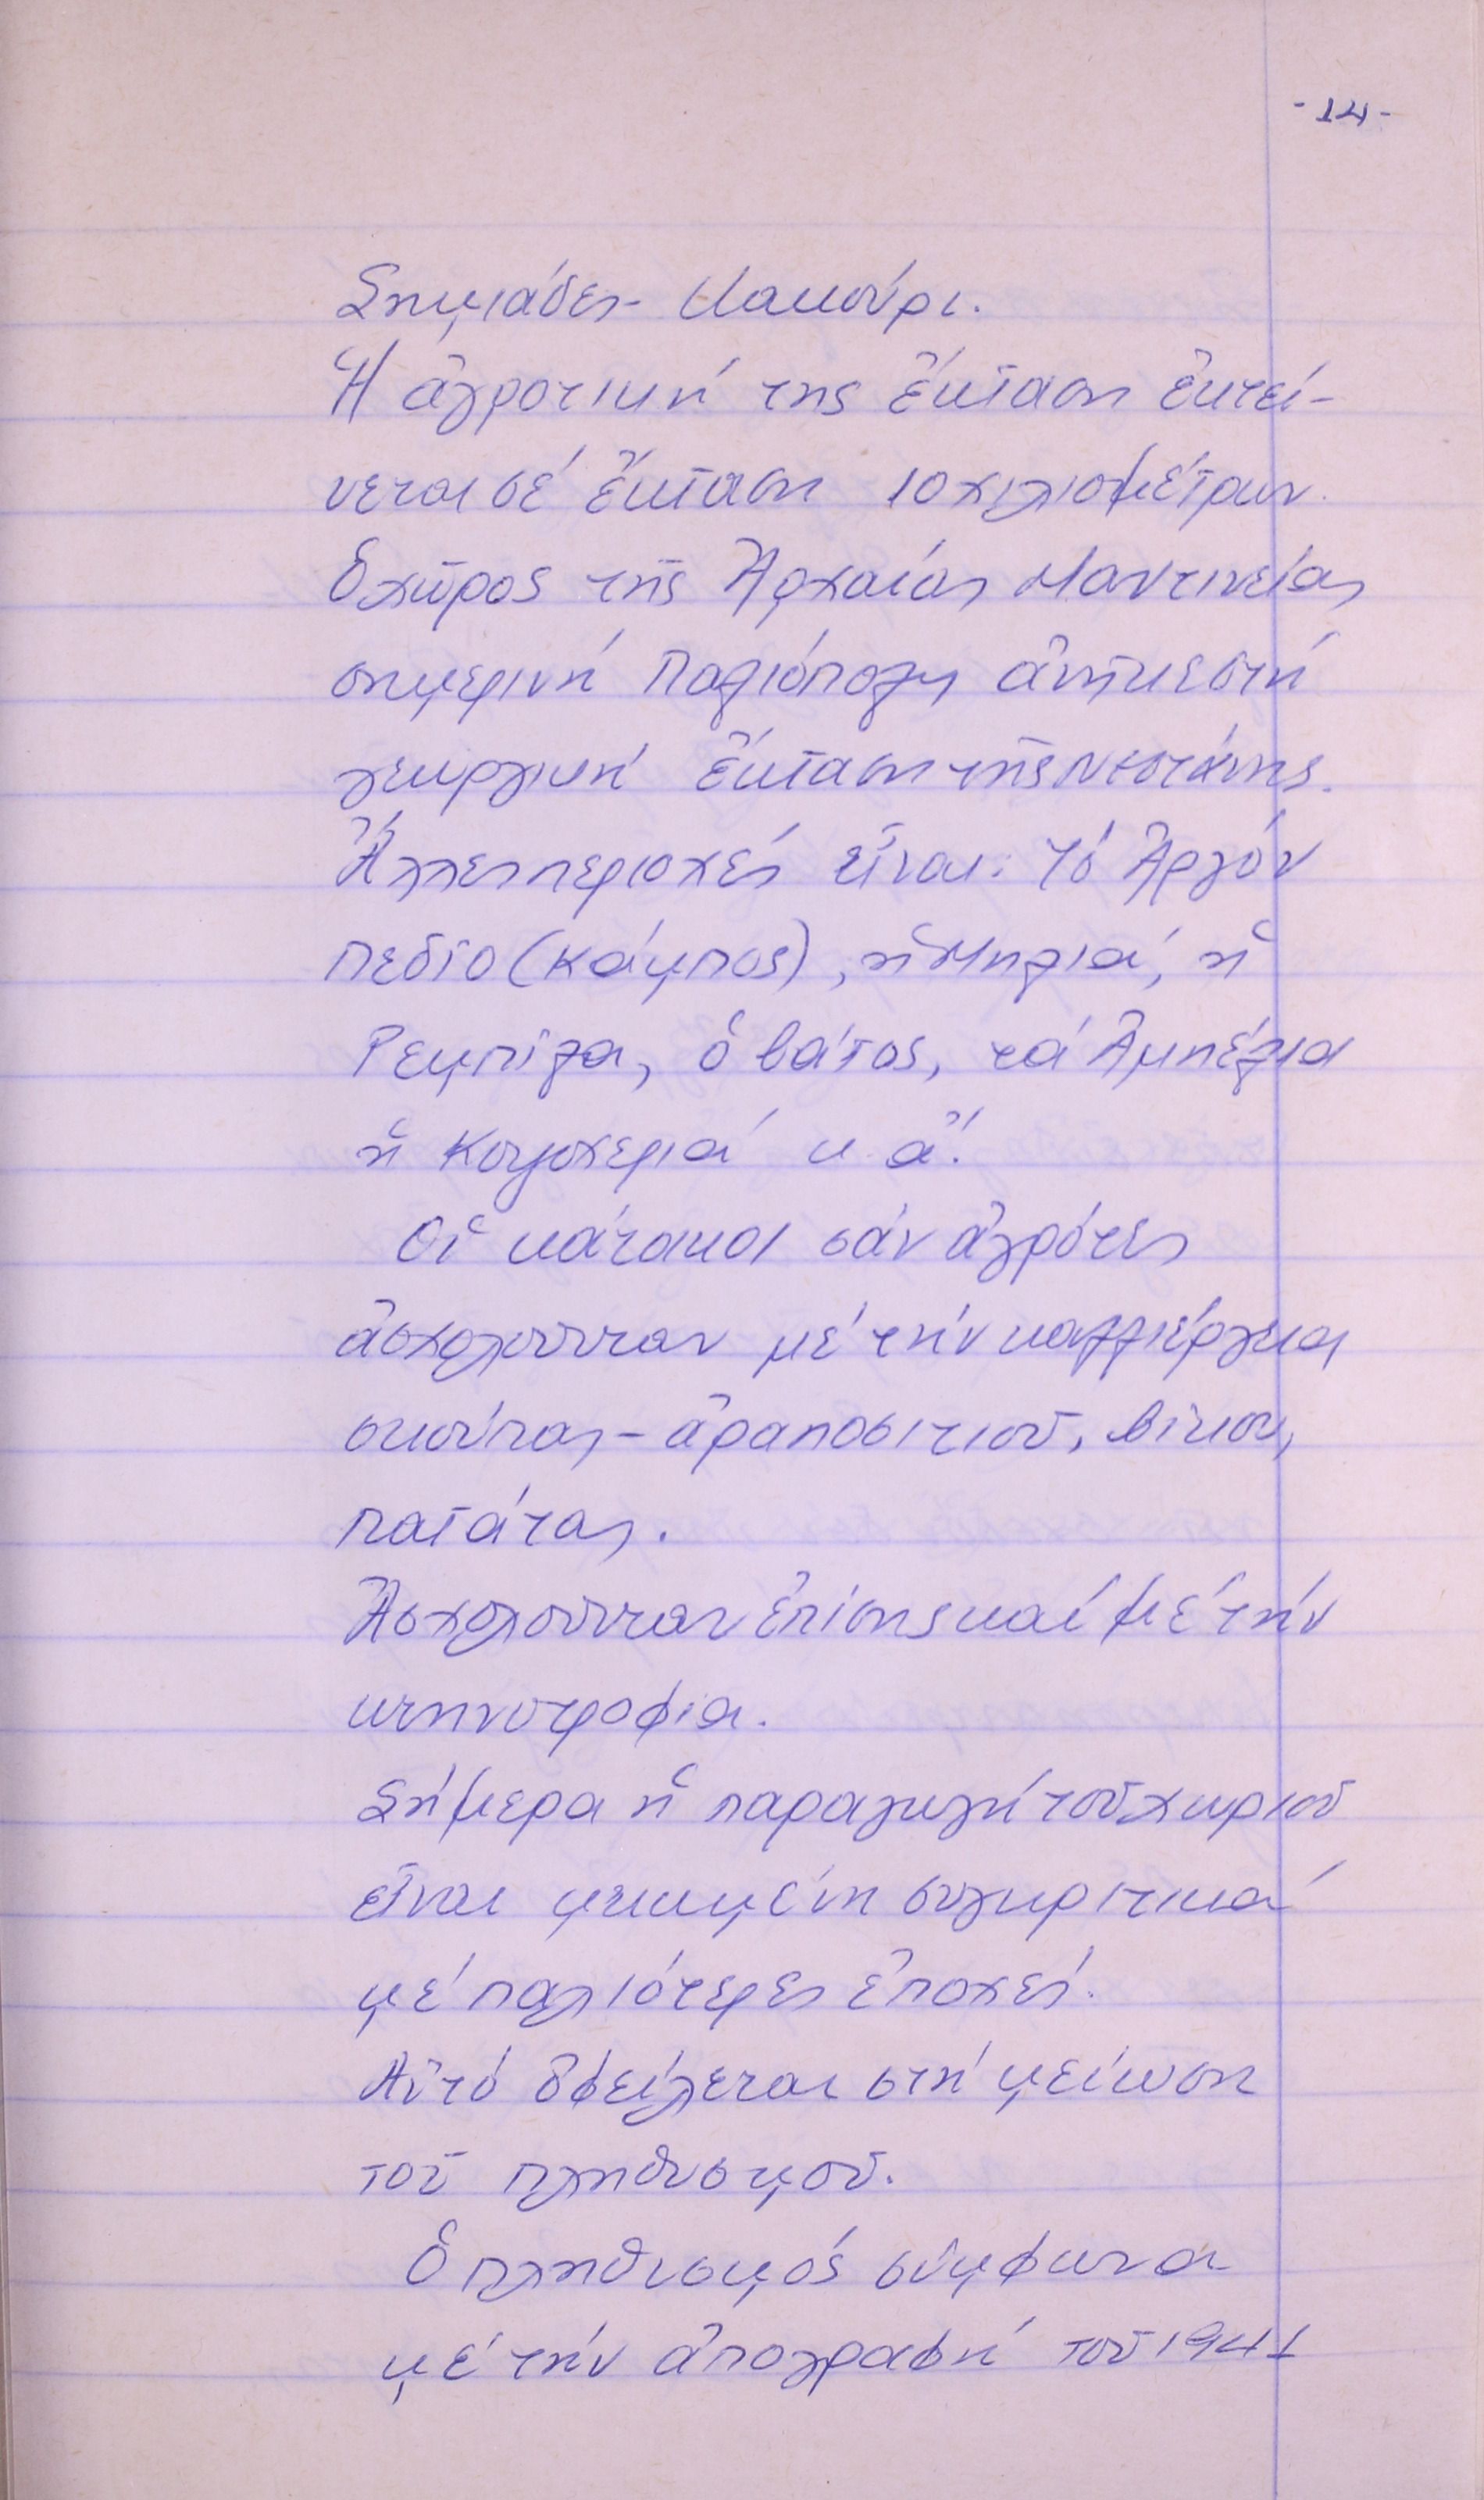 -14-
Σημιάδες- Κακούρι.
Ἡ ἀγροτική της ἔκταση ἐκτεί-
νεται σέ ἔκταση 10 χιλιομέτρων.
Ὁ χῶρος τῆς Ἀρχαίας Μαντινείας
σημερινή Παλιόπολη ἀνῆκε στή
γεωργική ἔκταση τῆς Νεστάνης.
Ἄλλες περιοχές εἶναι: τό Ἀργόν
πεδίο (κάμπος), ἡ Μηλιά, ἡ
Ρεμπῖλα, ὁ βάτος, τά Ἀμπέλια
ἡ κ.ἄ.
Οἱ κάτοικοι σάν ἀγρότες
ἀσχολοῦνταν μέ τήν καλλιέργεια
σκούπας - ἀραποσιτιοῦ, βίκου,
πατάτας.
Ἀσχολοῦνταν ἐπίσης καί μέ τήν
κτηνοτροφία.
Σήμερα ἡ παραγωγή τοῦ χωριοῦ
εἶναι μειωμένη συγκριτικά
μέ παλιότερες ἐποχές.
Αὐτό ὀφείλεται στή μείωση
τοῦ πληθυσμοῦ.
Ὁ πληθυσμός σύμφωνα
μέ τήν ἀπογραφή τοῦ 1941